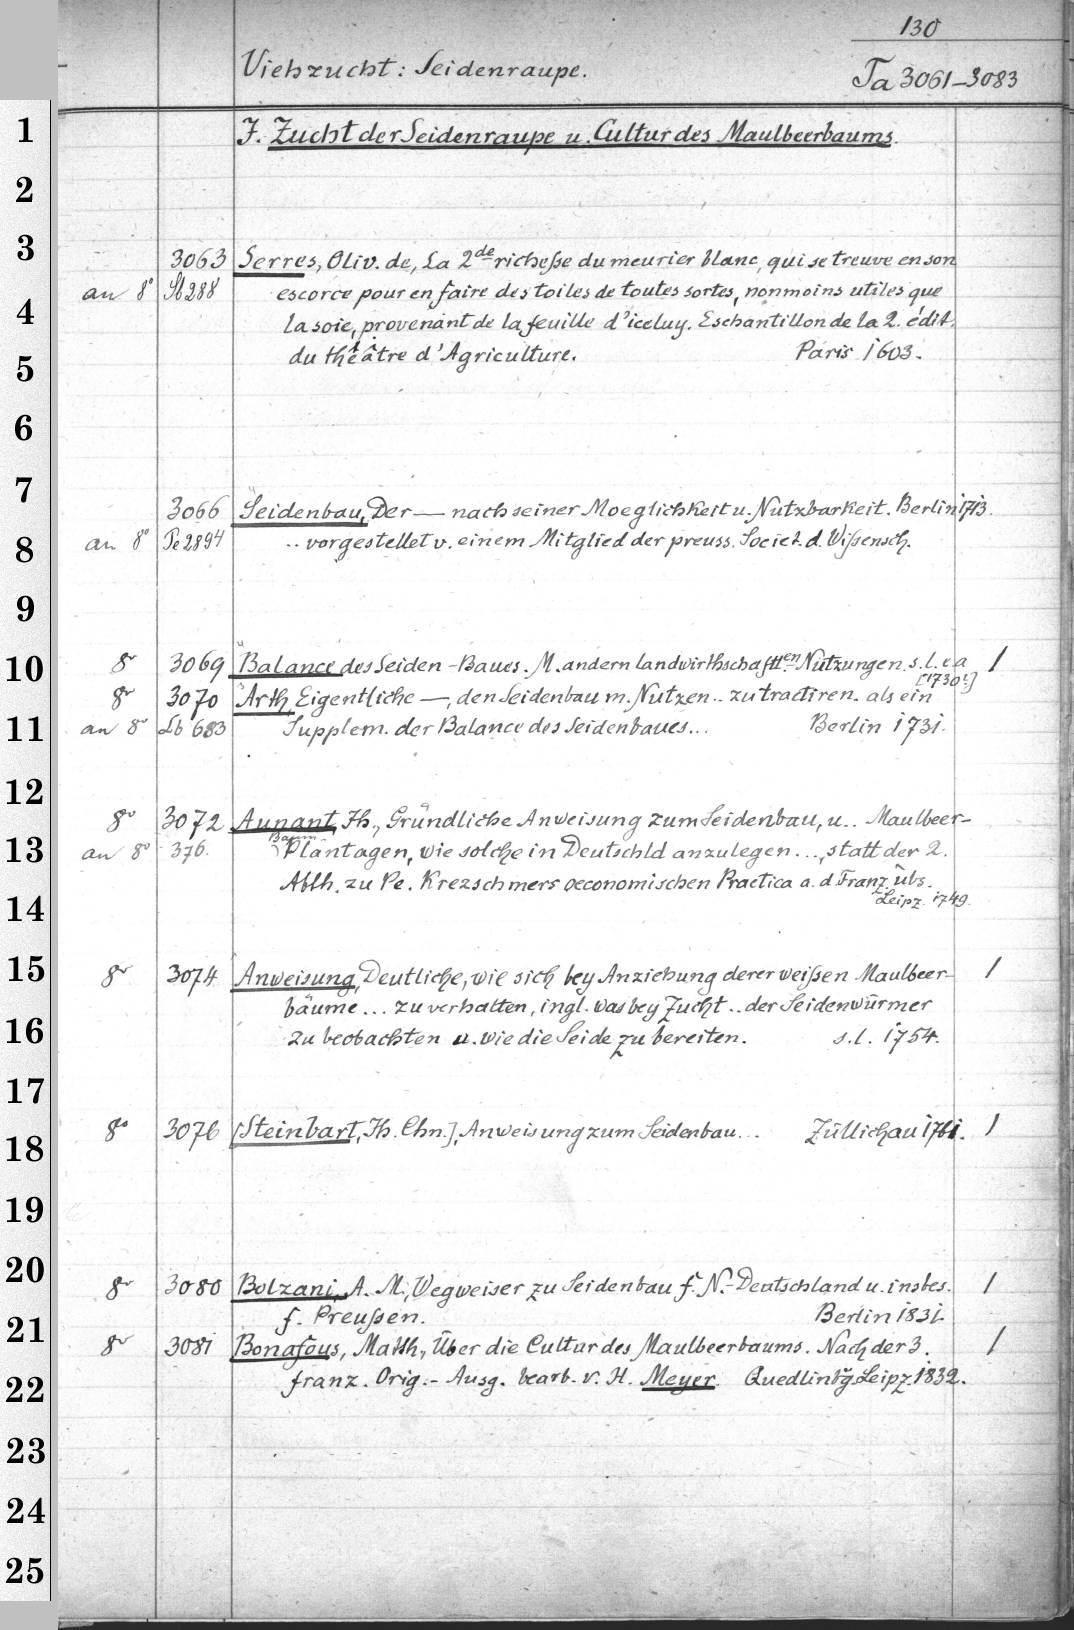 130
Viehzucht: Seidenraupe.
Ta 3061-3083
1
J. Zucht der Seidenraupe u. Cultur des Maulbeerbaums.
2
3
3063 Serres, Oliv. de, La 2de richeße du meurier blanc, qui se treuve en son
an 8° Sb 288 escorce pour en faire des toiles de toutes sortes, nonmoins utiles que
4
la soie, provenant de la feuille d'iceluy. Eschantillon de la 2. édit.
5
du théâtre d'Agriculture. Paris 1603.
6
7
3066 Seidenbau, Der — nach seiner Moeglichkeit u. Nutzbarkeit. Berlin 1713.
8
an 8° Te 2894 .. vorgestellet v. einem Mitglied der preuss. Societ. d. Wißensch.
9
10
8° 3069 Balance des Seiden-Baues. M. andern landwirthschaftl.en Nutzungen. s. l. e a 1
[1730?]
8° 3070 Arth, Eigentliche —, den Seidenbau m. Nutzen .. zu tractiren. als ein
11
an 8° Lb 683 Supplem. der Balance des Seidenbaues... Berlin 1731.
12
8° 3072 Aunant, Jh., Gründliche Anweisung zum Seidenbau, u.. Maulbeer-
13
Baum
an 8° 376. Plantagen, wie solche in Deutschld anzulegen ..., statt der 2.
Abth. zu Pe. Krezschmers oeconomischen Practica a. d. Franz. übs.
14
Leipz. 1749.
15
8° 3074 Anweisung, Deutliche, wie sich bey Anziehung derer weißen Maulbeer- 1
bäume ... zu verhalten, ingl. was bey Zucht .. der Seidenwürmer
16
zu beobachten u. wie die Seide zu bereiten. s. l. 1754.
17
18
8° 3076 [Steinbart, Jh. Chn.], Anweisung zum Seidenbau... Züllichau 1761. 1
19
20
8° 3080 Bolzani, A. M., Wegweiser zu Seidenbau f. N.-Deutschland u. insbes. 1
f. Preußen. Berlin 1831.
21
8° 3081 Bonafous, Matth., Über die Cultur des Maulbeerbaums. Nach der 3. 1
22
franz. Orig.- Ausg. bearb. v. H. Meyer. Quedlinbg. Leipz. 1832.
23
24
25